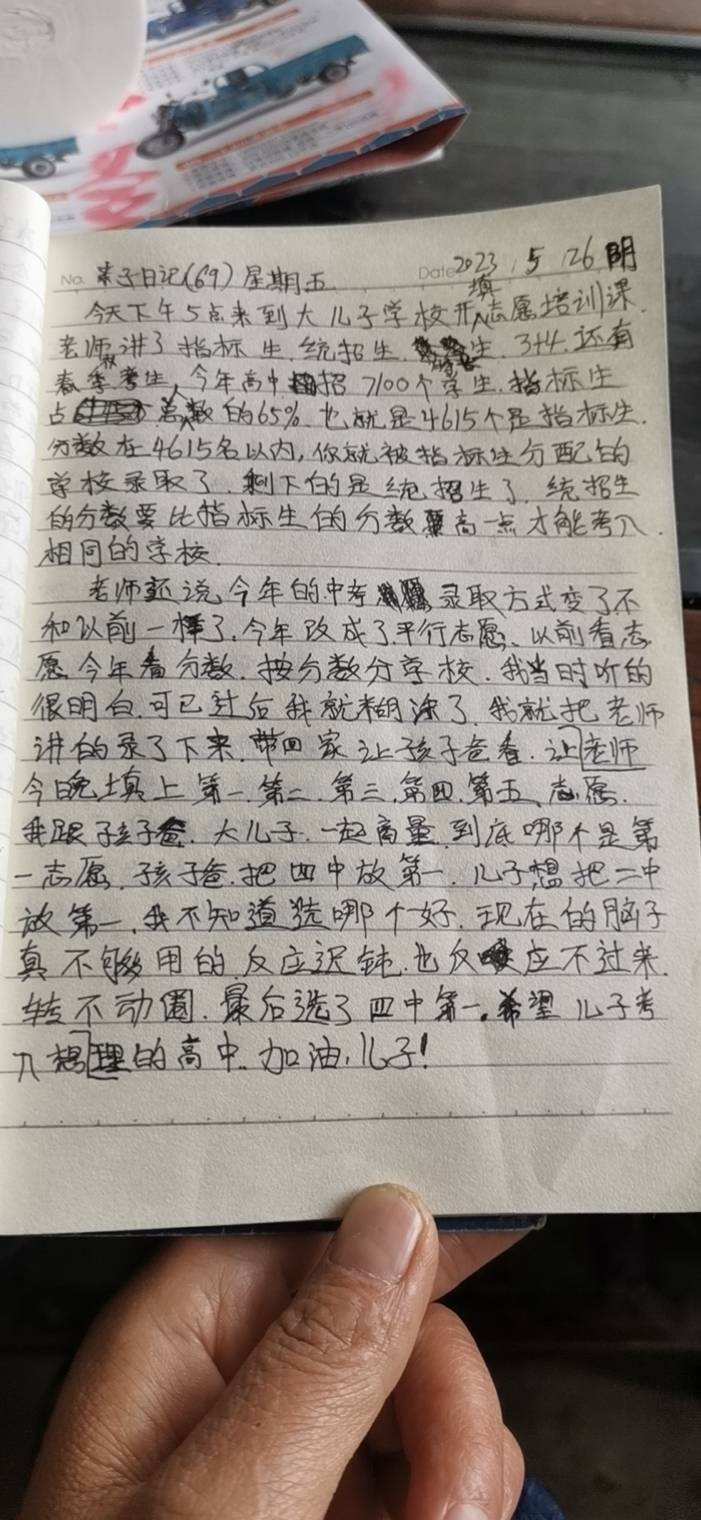 No. 亲子日记(69)星期五 Date 2023.5.26 阴
今天下午5点来到大儿子学校开填志愿培训课.
老师讲了指标生.统招生.生.3+4.还有
春季考生,今年高中招7100个学生.指标生
占总数的65%.也就是4615个是指标生.
分数在4615名以内,你就被指标生分配的
学校录取了.剩下的是统招生了.统招生
的分数要比指标生的分数要高一点才能考入
相同的学校.
老师还说今年的中考录取方式变了.不
和以前一样了.今年改成了平行志愿、以前看志
愿.今年看分数.按分数分学校.我当时听的
很明白.可已过后我就糊涂了.我就把老师
讲的录了下来.带回家让孩子爸看.让老师
今晚填上第一.第二.第三.第四.第五.志愿.
我跟孩子爸.大儿子.一起商量.到底哪个是第
一志愿.孩子爸.把四中放第一.儿子想把二中
放第一.我不知道选哪个好.现在的脑子
真不够用的.反应迟钝.也反应不过来.
转不动圈.最后选了四中第一.希望儿子考
入想理的高中.加油,儿子!